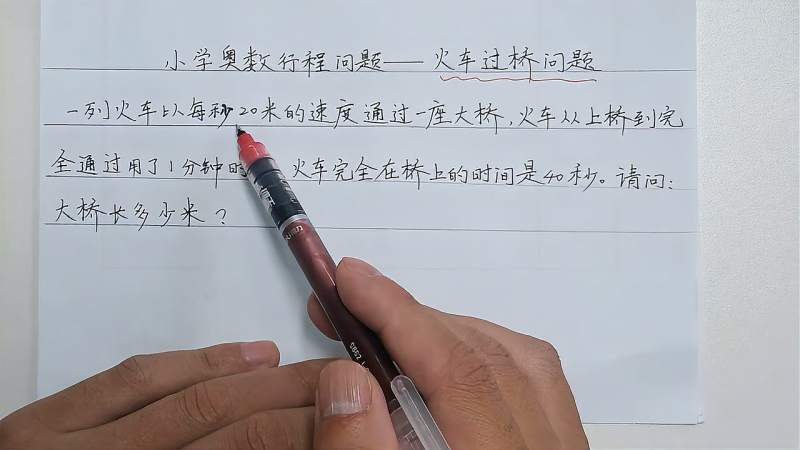 小学奥数行程问题——火车过桥问题
一列火车以每秒20米的速度通过一座大桥,火车从上桥到完
全通过用了1分钟时 火车完全在桥上的时间是40秒。请问:
大桥长多少米?